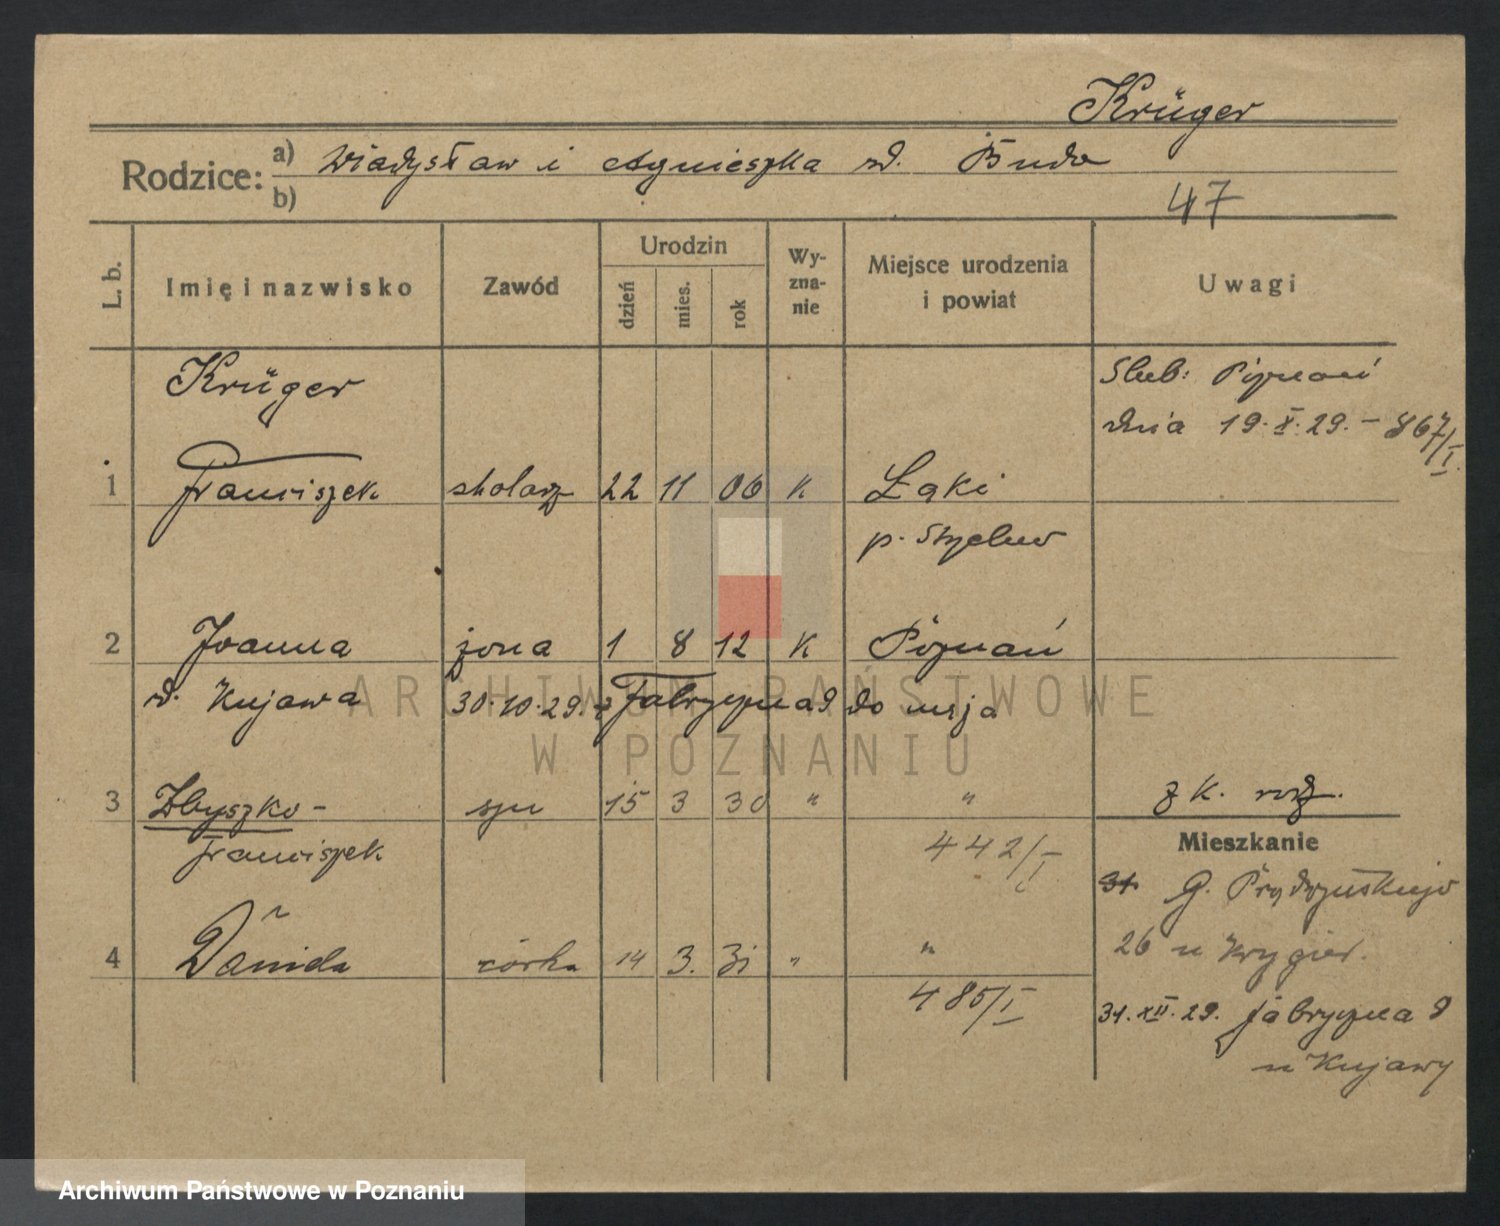 Krüger
Rodzice: a) Władysław i Agnieszka zd. Buda
b)
47
L. b. Imię i nazwisko Zawód Urodzin dzień mies. rok Wy-zna-nie Miejsce urodzenia i powiat Uwagi
Krüger
Ślub: Poznań
dnia 19.X.29. - 867/I
1 Franciszek stolarz 22 11 06 K Łąki
p. Strzelno
2 Joanna żona 1 8 12 K Poznań
zd. Kujawa 30.10.29. z Fabryczna 9 do męża
3 Zbyszko - syn 15 3 30 " " z k. rodz.
Franciszek 442/I
Mieszkanie
G. Prądzyńskiego
26 u Krygier.
4 Danida córka 14 3. 31 " "
485/I
31.XII.29. Fabryczna 9
u Kujawy
ARCHIWUM PAŃSTWOWE
W POZNANIU
Archiwum Państwowe w Poznaniu